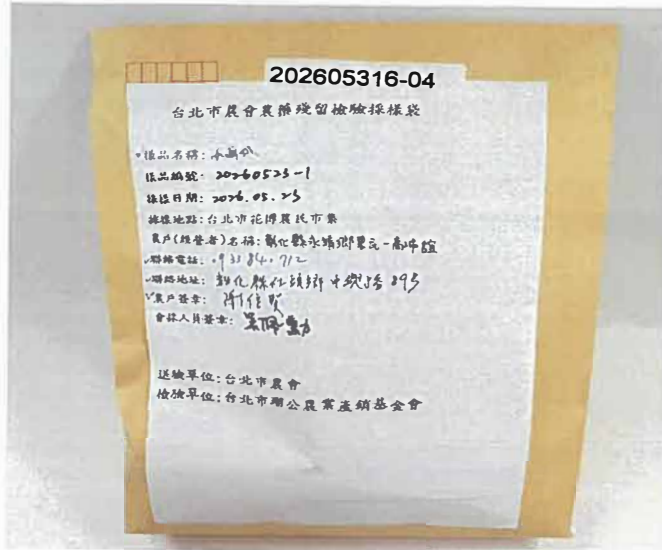 202605316-04
台北市農會農藥殘留檢驗採樣袋
樣品名稱:
樣品編號: 20260523-1
採樣日期: 2026.05.23
採樣地點:台北市花博農民市集
農戶(經營者)名稱:彰化縣永靖鄉農民-高沛誼
聯絡電話:
聯絡地址: 彰化縣 鄉中 路895
農戶簽章:
會採人員簽章:
送驗單位:台北市農會
檢驗單位:台北市瑠公農業產銷基金會